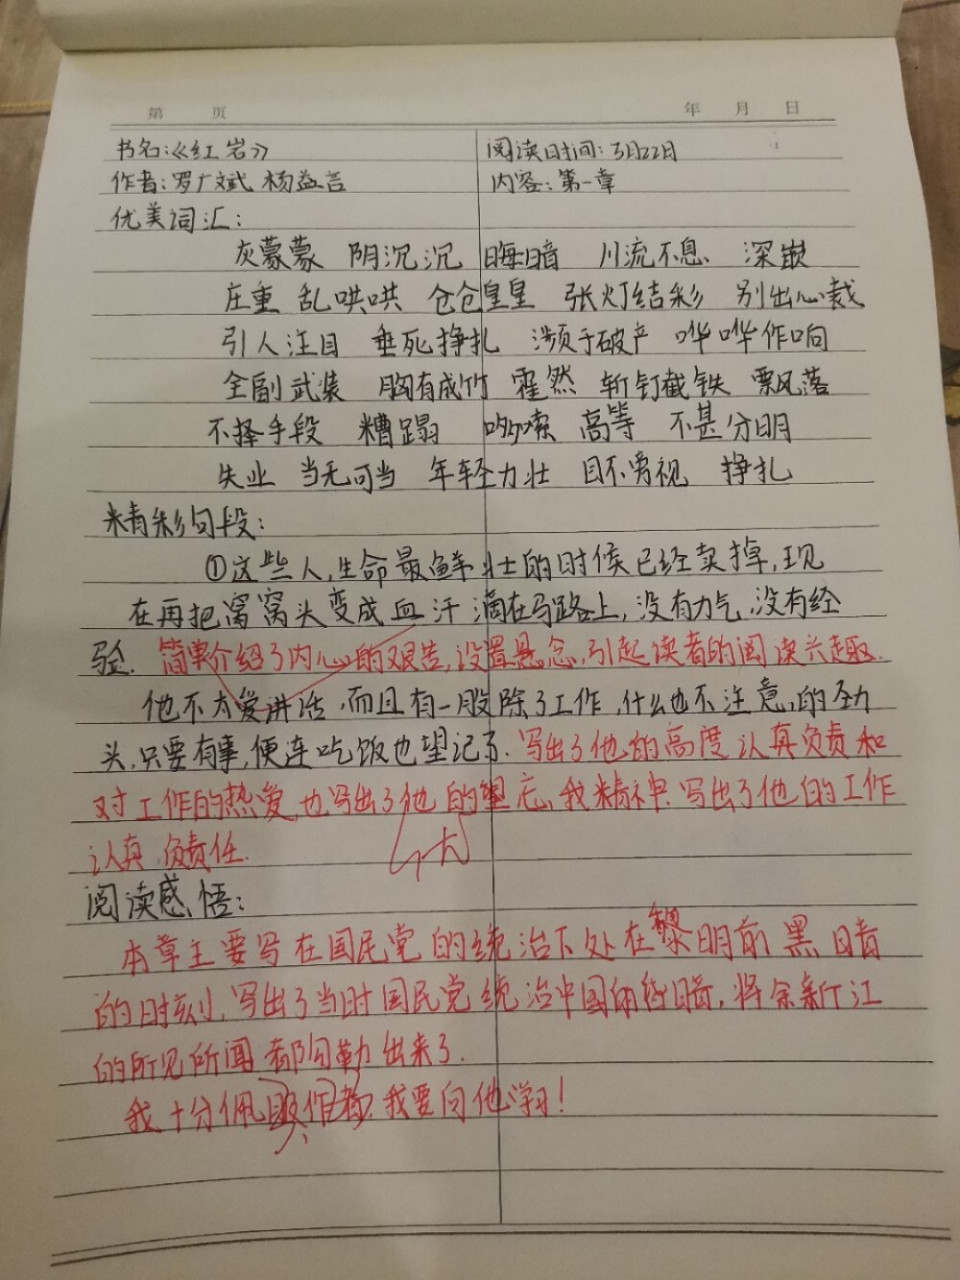 第 页 年 月 日
书名:《红岩》 阅读时间:3月22日
作者:罗广斌 杨益言 内容:第一章
优美词汇:
灰蒙蒙 阴沉沉 晦暗 川流不息 深嵌
庄重 乱哄哄 仓仓皇皇 张灯结彩 别出心裁
引人注目 垂死挣扎 濒于破产 哗哗作响
全副武装 胸有成竹 霍然 斩钉截铁 飘落
不择手段 糟蹋 哆嗦 高等 不甚分明
失业 当无可当 年轻力壮 目不旁视 挣扎
精彩句段:
①这些人,生命最鲜壮的时候已经卖掉,现
在再把窝窝头变成血汗滴在马路上,没有力气,没有经
验.简单介绍了内心的艰苦,设置悬念,引起读者的阅读兴趣.
他不太爱讲话,而且有一股除了工作,什么也不注意,的劲
头,只要有事,便连吃饭也望记了.写出了他的高度认真负责和
对工作的热爱,也写出了他的 忘,我精神.写出了他的工作
认真,负责任.
阅读感悟:
本章主要写在国民党的统治下处在黎明前黑暗
的时刻,写出了当时国民党统治中国的 暗,将余新江
的所见所闻都勾勒出来了.
我十分佩服作者,我要向他学习!